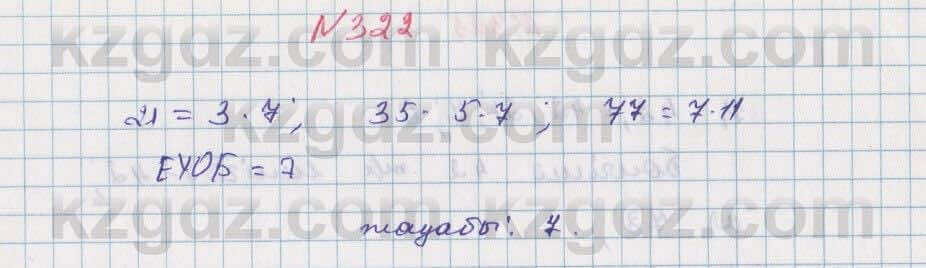 N 322
21 = 3 · 7; 35 - 5 · 7 ; 77 = 7 · 11
ЕҮОБ = 7
жауабы: 7.
kzgdz.com kzgdz.com
kzgdz.com kzgdz.com
kzgdz.com kzgdz.com